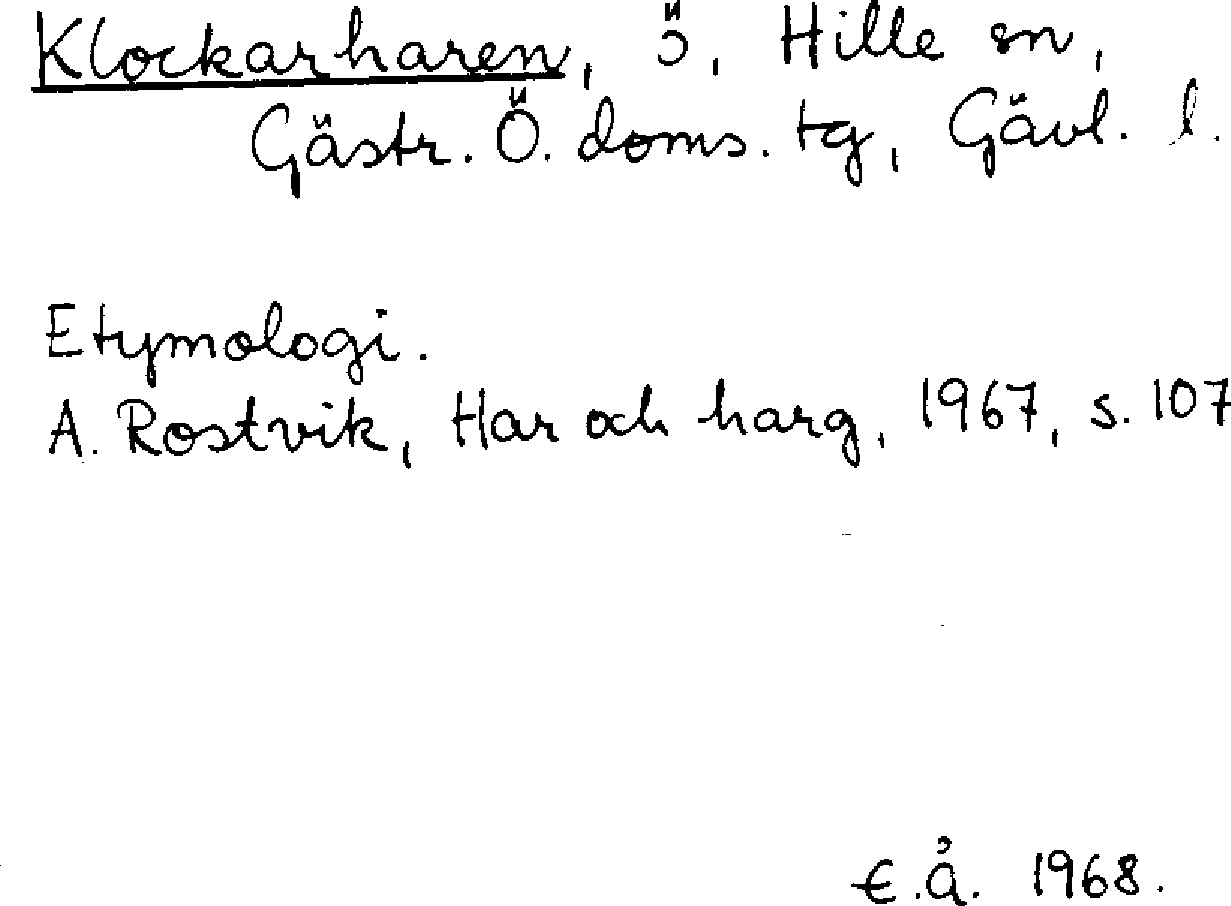 Klockarharen, ö, Hille sn,
Gästr. Ö. doms. tg, Gävl. l.
Etymologi.
A. Rostvik, Har och harg, 1967, s. 107
E.Å. 1968.